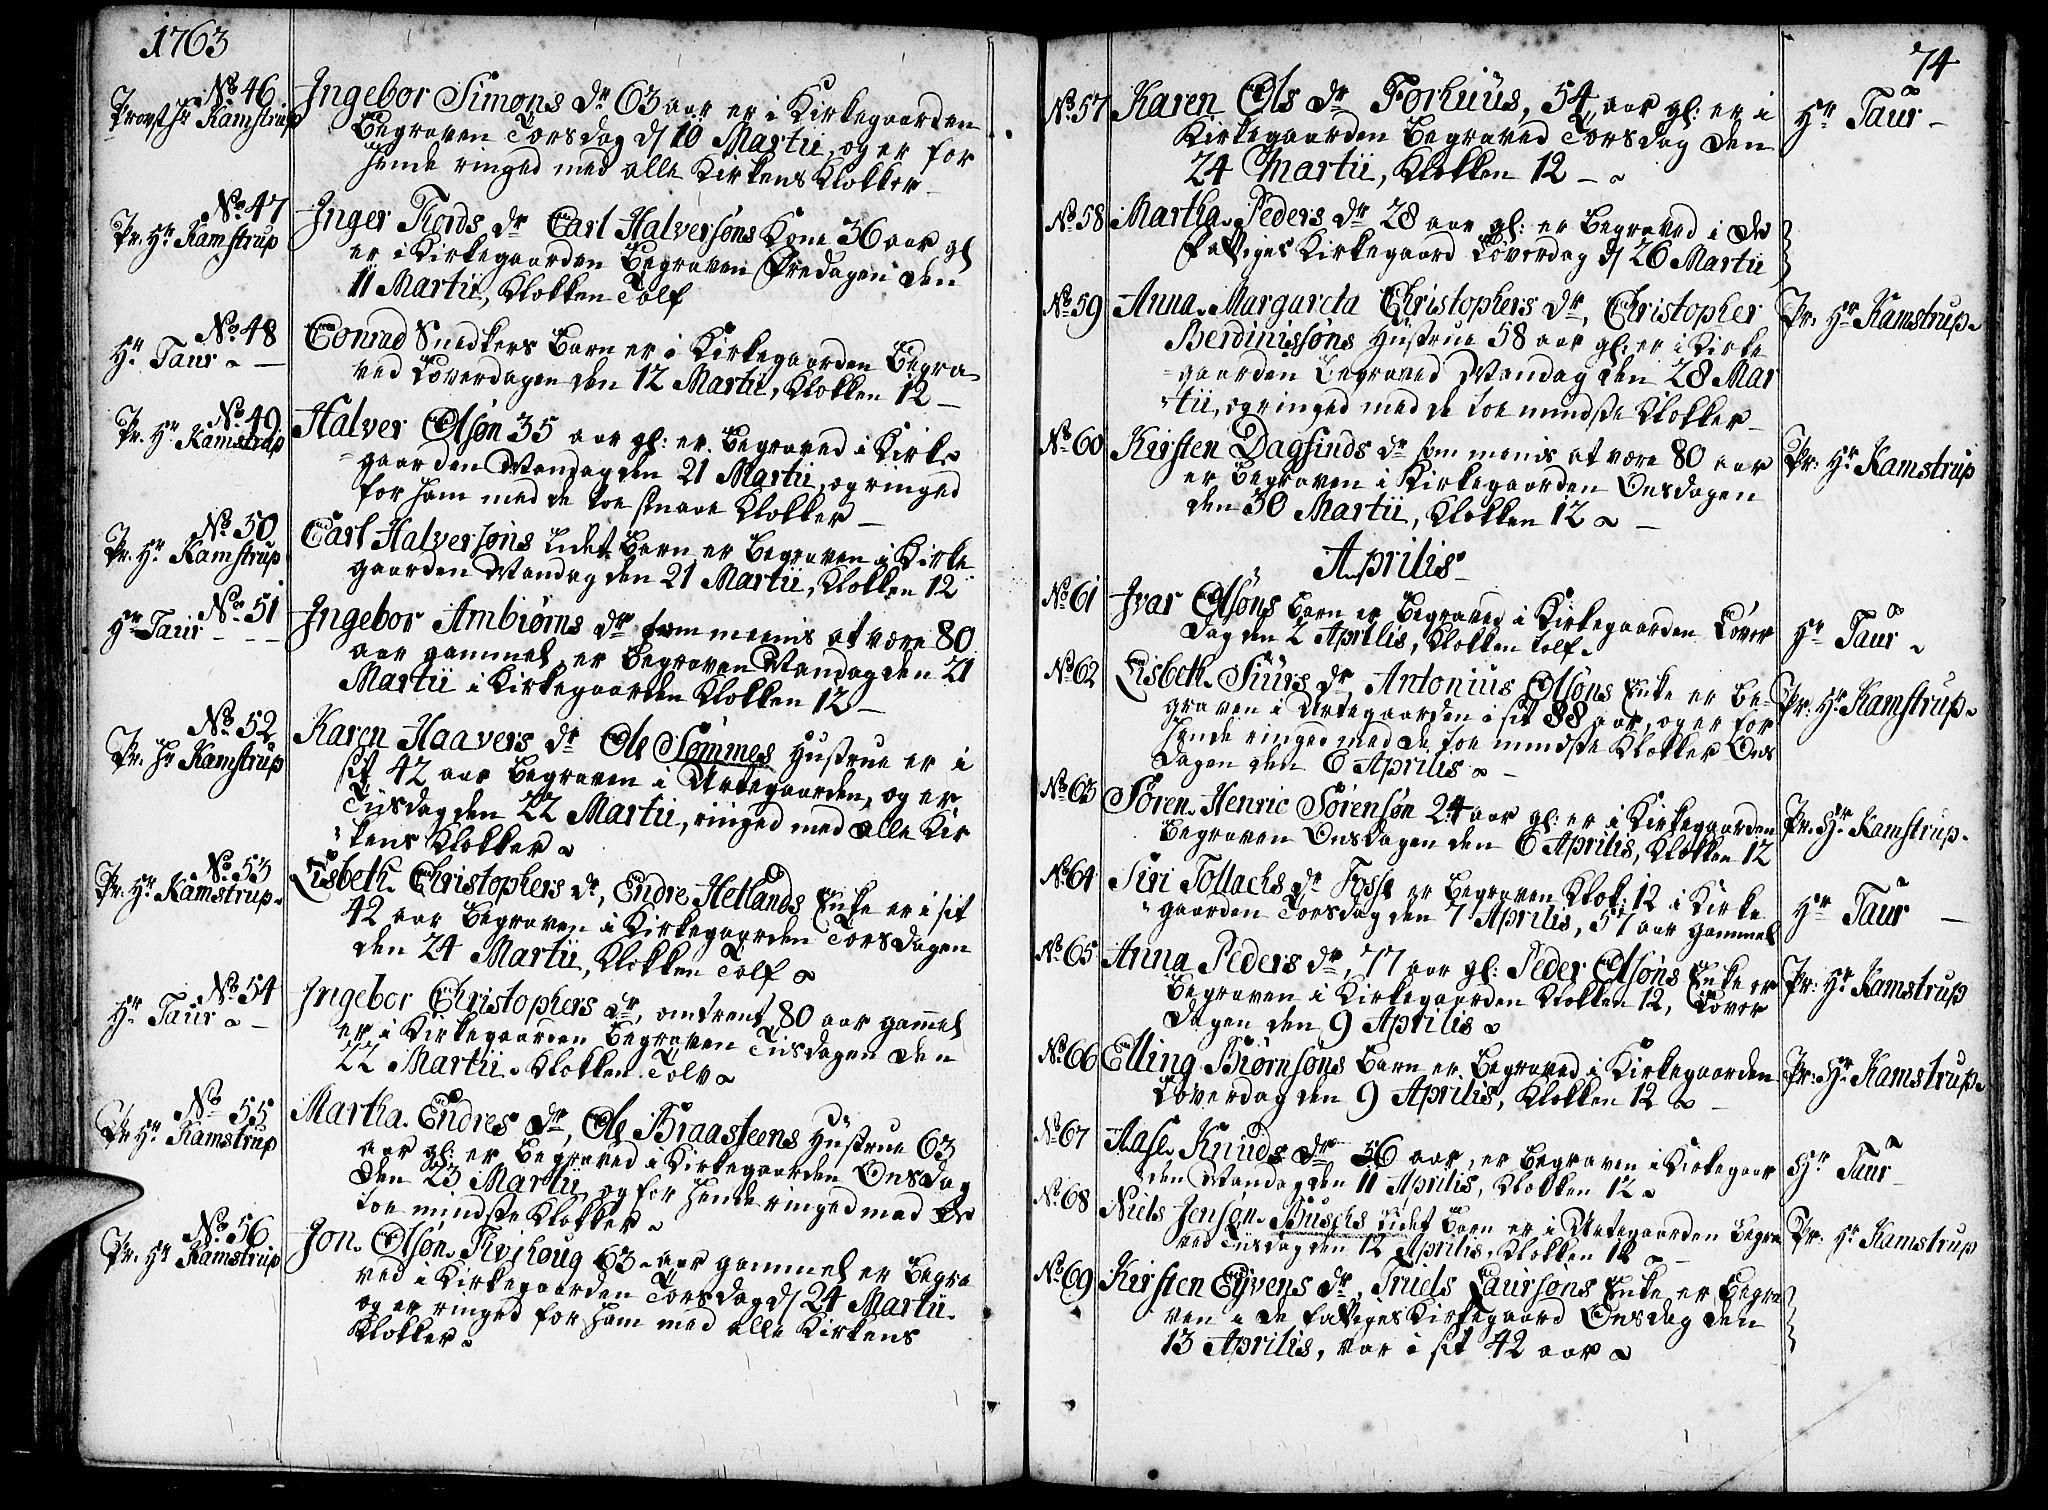 1763
No. 46
Provst Hr. Kamstrup
Ingebor Simons dr. 63 aar er i Kirkegaarden
Begraven Torsdag d/ 10 Martii, og er for
hende ringed med alle Kirkens Klokker
No. 47
Pr. Hr. Kamstrup
Inger Tords dr. Carl Halversøns Kone 36 aar gl
er i Kirkegaarden Begraven Fredagen den
11 Martii, Klokken Tolf
No. 48
Hr. Taur
Conrad Snedkers Barn er i Kirkegaarden Begra
ved Løverdagen den 12 Martii, Klokken 12
No. 49
Pr. Hr. Kamstrup
Halver Olsøn 35 aar gl: er Begraved i Kirke
gaarden Mandag den 21 Martii, og ringed
for ham med de toe smaae Klokker
No. 50
Pr. Hr. Kamstrup
Carl Halversøns lidet Barn er Begraven i Kirke
gaarden Mandag den 21 Martii, Klokken 12
No. 51
Hr. Taur
Ingebor Ambiørns dr. som meenis at være 80
aar gammel, er Begraven Mandag den 21
Martii i Kirkegaarden Klokken 12
No. 52
Pr. Hr Kamstrup
Karen Haavers dr. Ole Sømmes Hustrue er i
sit 42 aar Begraven i Urtegaarden, og er
Tiisdag den 22 Martii, ringed med alle Kir
kens Klokker
No. 53
Pr. Hr. Kamstrup
Lisbeth Christophers dr, Endre Hetlands Enke er i sit
42 aar Begraven i Kirkegaarden Torsdagen
den 24 Martii, Klokken Tolf
No. 54
Hr. Taur
Ingebor Christophers dr, omtrent 80 aar gammel
er i Kirkegaarden Begraven Tiisdagen den
22 Martii Klokken Tolv
No. 55
Pr Hr. Kamstrup
Martha Endres dr, Ole Braasteens Hustrue 63
aar gl: er Begraved i Kirkegaarden Onsdag
den 23 Martii, og for hende ringed med de
toe mindste Klokker
No. 56
Pr. Hr Kamstrup
Jon Olsøn 63 aar gammel er Begra
ved i Kirkegaarden Torsdag d/ 24 Martii
og er ringed for ham med alle Kirkens
Klokker
74
No. 57
Karen Ols dr. Forhuus, 54 aar gl: er i
Kirkegaarden Begraved Torsdag den
24 Martii, Klokken 12
Hr Taur
No. 58
Martha Peders dr. 28 aar gl: er Begraved i de
Fattiges Kirkegaard Løverdag d/ 26 Martii
No. 59
Anna Margareta Christophers dr, Christopher
Berdinissøns Hustrue 58 aar gl: er i Kirke
gaarden Begraved Mandag den 28 Mar
tii, og ringed med de toe mindste Klokker
Pr. Hr. Kamstrup
No. 60
Kirsten Dagfinds dr som menis at være 80 aar
er Begraven i Kirkegaarden Onsdagen
den 30 Martii, Klokken 12
Pr: Hr. Kamstrup
Aprilis
No. 61
Ivar Olsøns Barn er Begraved i Kirkegaarden Løver
dag den 2 Aprilis, Klokken tolf
Hr Taur
No. 62
Lisbeth Siurs dr, Antonius Olsøns Enke er Be-
graven i Urtegaarden i sit 88 aar, og er for
hende ringed med de toe mindste Klokker Ons
dagen den 6 Aprilis
Pr: Hr. Kamstrup
No. 63
Søren Henric Sørensøn 24 aar gl: er i Kirkegaarden
Begraven Onsdagen den 6 Aprilis, Klokken 12
Pr: Hr. Kamstrup
No. 64
Siri Tollachs dr Fosse er Begraven Klok: 12 i Kirke
gaarden Torsdag den 7 Aprilis, 57 aar gammel
Hr Taur
No. 65
Anna Peders dr, 77 aar gl: Peder Olsøns Enke er
Begraven i Kirkegaarden Klokken 12, Løver
dagen den 9 Aprilis
Pr: Hr. Kamstrup
No. 66
Elling Biørnsøns Barn er Begraved i Kirkegaarden
Løverdag den 9 Aprilis, Klokken 12
Pr: Hr. Kamstrup
No. 67
Aase Knuds dr 56 aar, er Begraven i Kirkegaar
den Mandag den 11 Aprilis, Klokken 12
Hr Taur
No. 68
Niels Jensøn Buschs lidet Barn er i Urtegaarden Begra
ved Tiisdag den 12 Aprilis, Klokken 12
Pr: Hr. Kamstrup
No. 69
Kirsten Eyvens dr, Truels Laursøns Enke er Begra
ven i de fattiges Kirkegaard Onsdag den
13 Aprilis, var i sit 42 aar